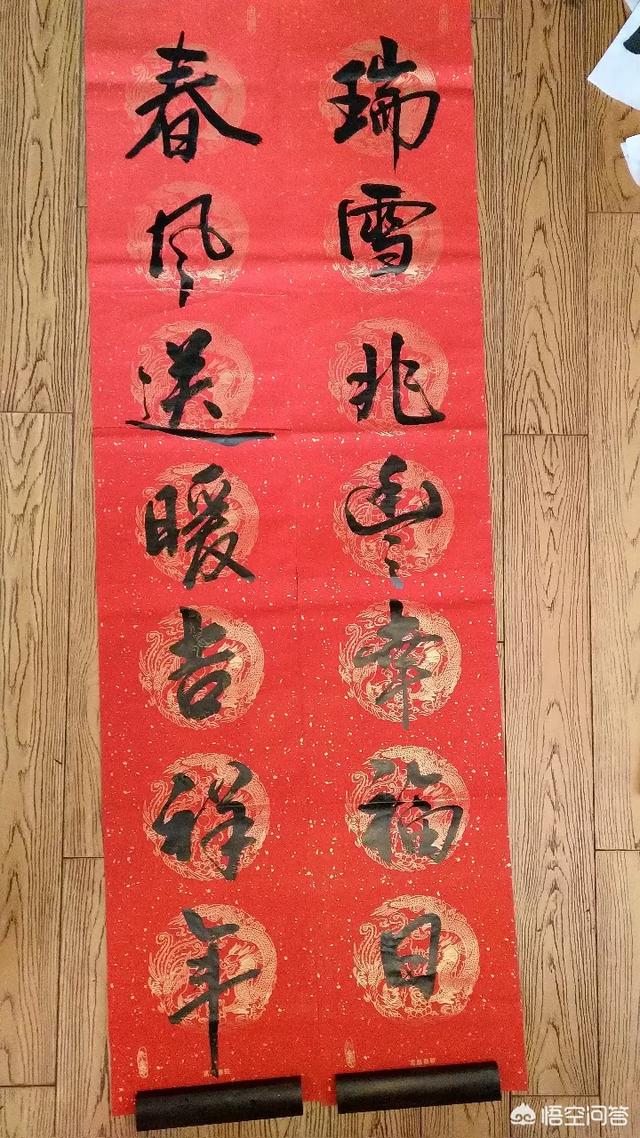 瑞雪兆丰幸福日
春风送暖吉祥年
悟空问答